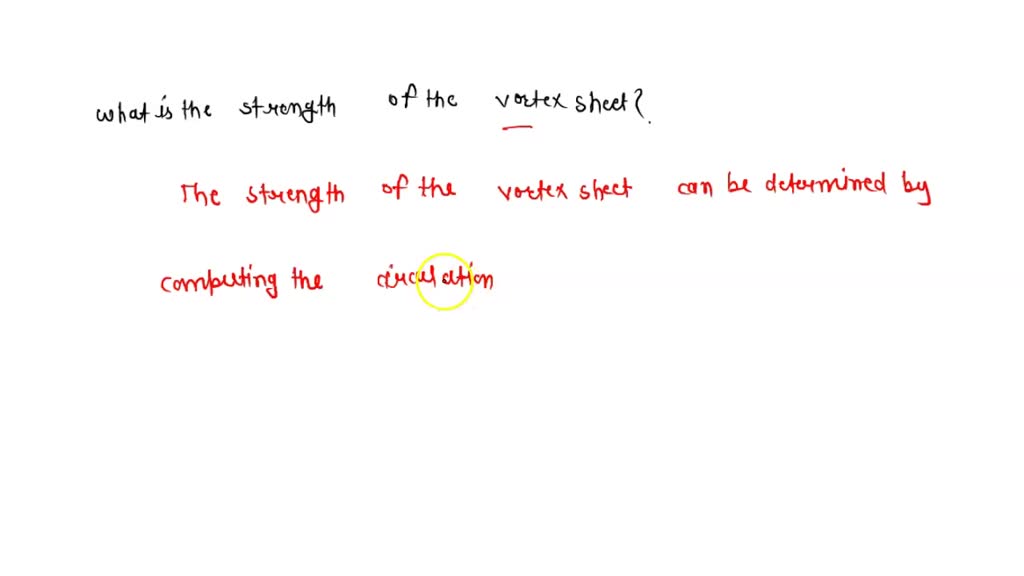 what is the strength of the vortex sheet?
The strength of the vortex sheet can be determined by
computing the circulation